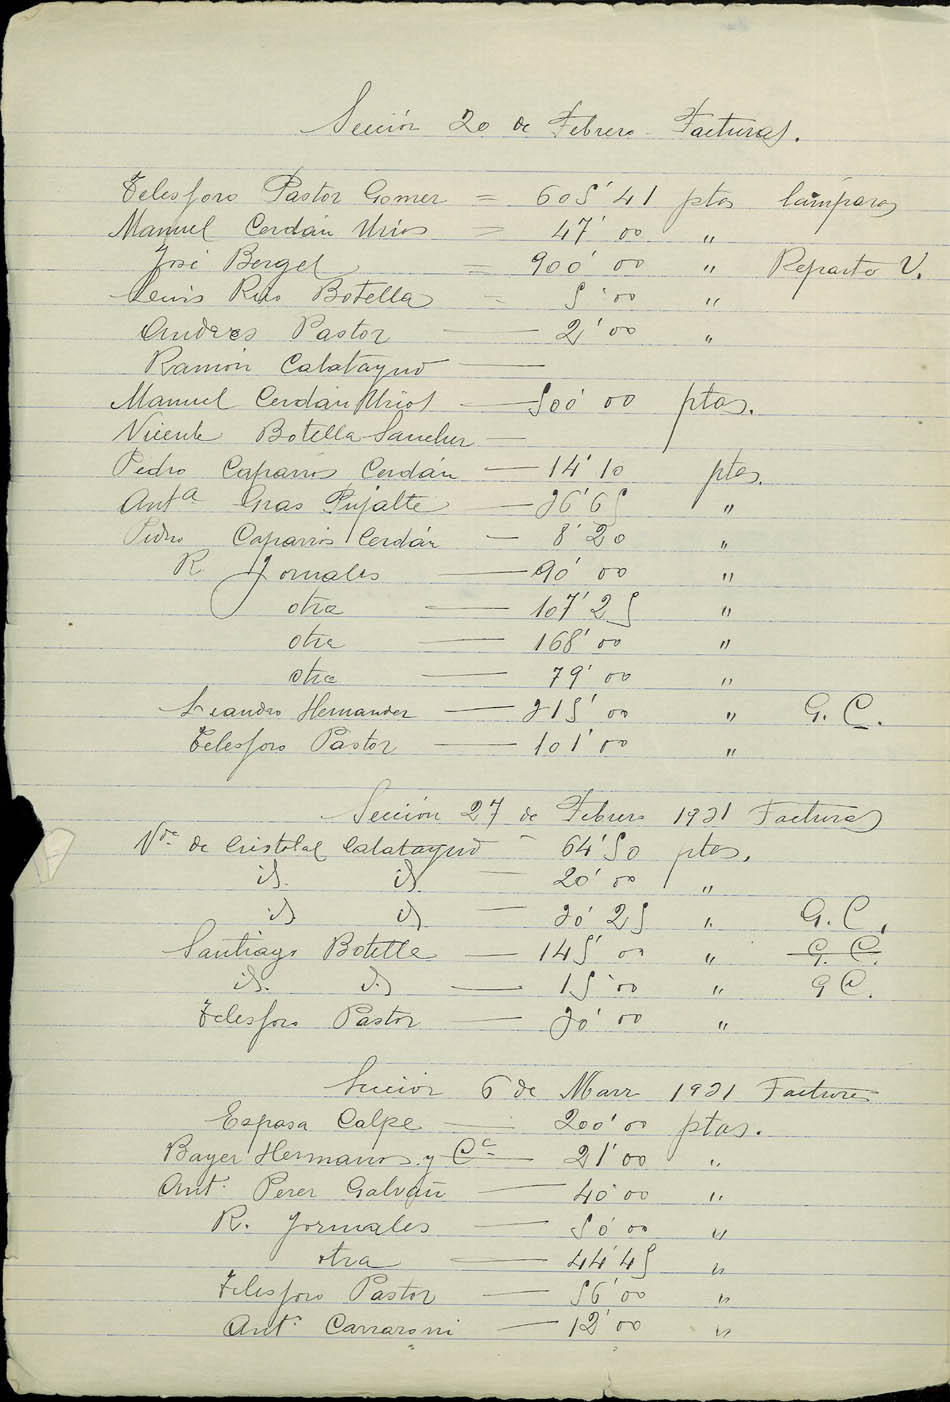 Seccion 20 de Febrero - Facturas.
Telesforo Pastor Gomez = 605'41 ptas lámparas
Manuel Cerdán Urios = 47'00 "
José Berget = 900'00 " Reparto V.
Luis Rico Botella = 5'00 "
Andres Pastor — 2'00 "
Ramón Calatayud —
Manuel Cerdán Urios — 500'00 ptas.
Vicente Botella Sanchez —
Pedro Caparrós Cerdán — 14'10 ptas.
Antª Gras Pujalte — 36'65 "
Pedro Caparrós Cerdán — 8'20 "
R Jornales — 90'00 "
otra — 107'25 "
otra — 168'00 "
otra — 79'00 "
Leandro Hernandez — 315'00 " G. C.
Telesforo Pastor — 101'00 "
Sección 27 de Febrero 1931 Facturas
Vda de Cristobal Calatayud = 64'50 ptas.
id. id. — 20'00 "
id id — 30'25 " G. C.
Santiago Botella — 145'00 " G. C.
id. id.) — 15'00 " G C.
Telesforo Pastor — 30'00 "
Seccion 6 de Marz 1931 Facturas
Espasa Calpe — 200'00 ptas.
Bayer Hermanos y Cª — 21'00 "
Ant. Perez Galvañ — 40'00 "
R. Jornales — 50'00 "
otra — 44'45 "
Telesforo Pastor — 56'00 "
Ant.
 — 12'00 "